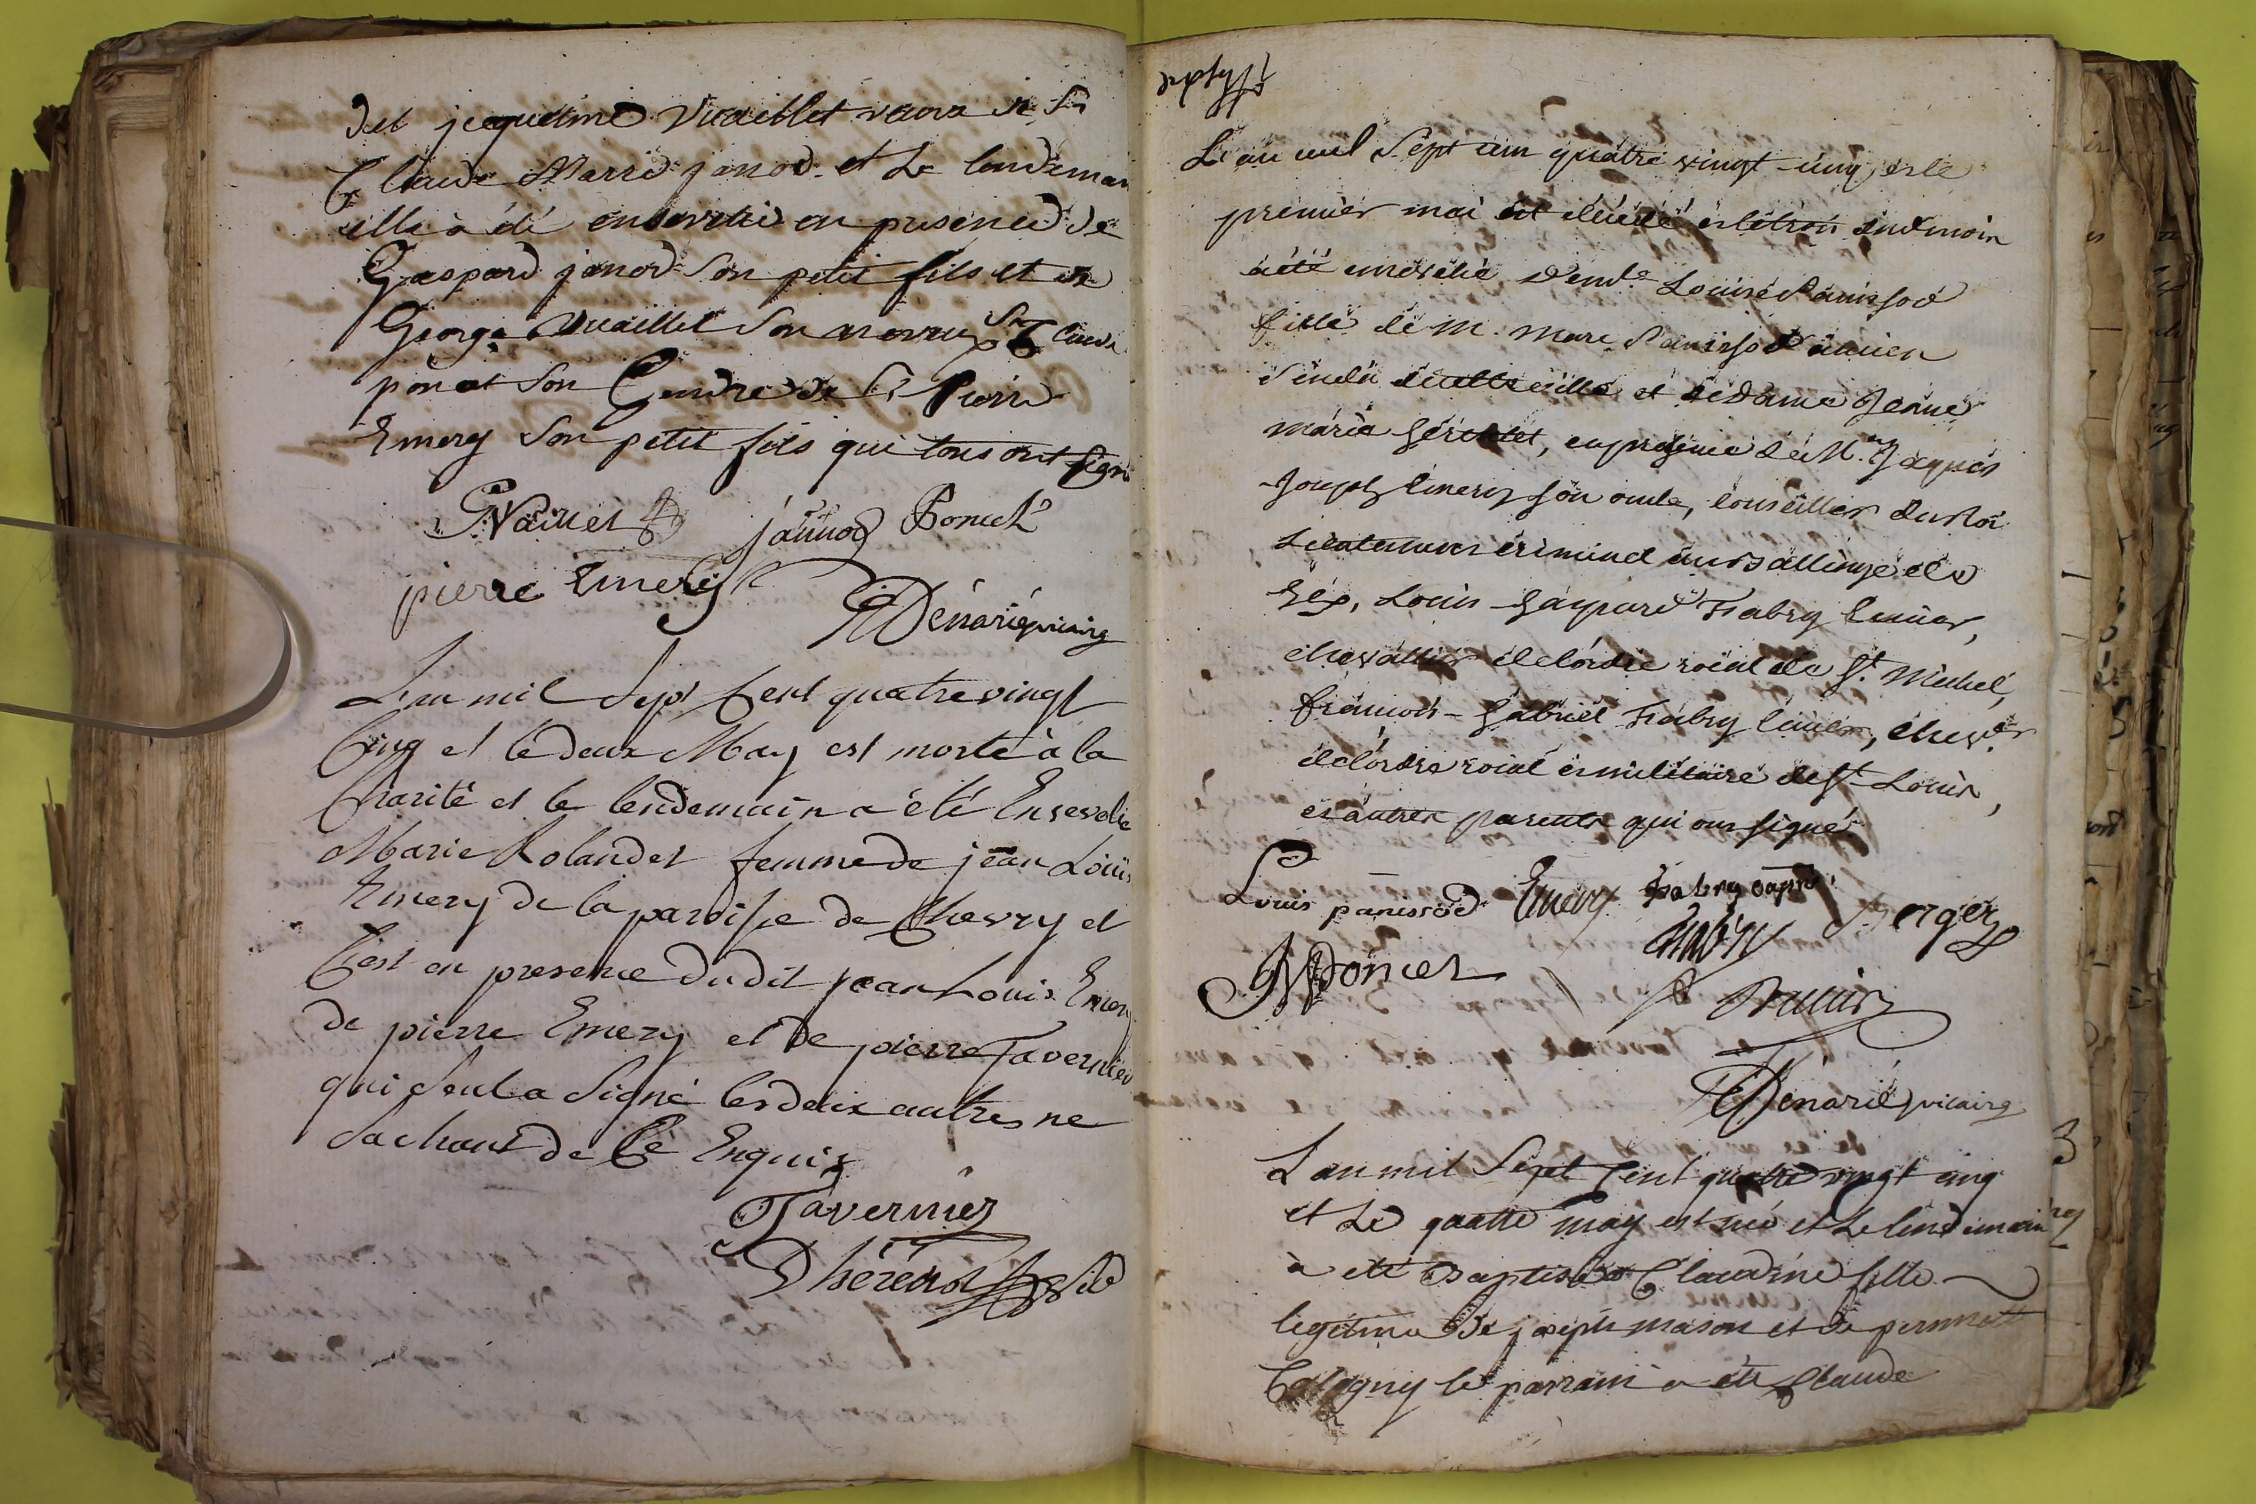 det jaqueline Vuaillet veuve de Sr
Claude Marie janod et Le landemain
elle a été ensevelie en presence de
Gaspard janod son petit fils et de
George Vuaillet son neveu, Sr Claude
poncet son Gendre et Sr Pierre
Emery son petit fils qui tous ont signé
GVaillet jannod Poncet
pierre Emery
Dénarié vicaire
L'an mil Sept Cent quatre vingt
Cinq et le deux May est morte à la
Charité et le lendemain a été Ensevelie
Marie Rolandet femme de jean Louis
Emery de la paroisse de Chevry et
C'est en presence dudit jean Louis Emery
de pierre Emery et de pierre Tavernier
qui Seul a Signé les deux autres ne
Sachant de Ce Enquis
Tavernier
L'an mil Sept cen quatre vingt cinq et le
premier mai est décédé et le trois du d. mois
a été ensevelie Demlle Louise Panissod
fille de M. Marc Panissod ancien
Sindic de cette ville et de Dame Jeanne
Maria Gerchlet, en presence de M. Jaques
Joseph Emery son oncle, Conseiller du Roi
Lieutenant criminel au Bailliage de
Gex, Louis Gaspard Fabry Ecuier,
chevalier de l'ordre roial de St. Michel,
françois-Gabriel Fabry Ecuier, chevr
de l'ordre roial et militaire de St Louis,
et autres parents qui ont signés
Louis panissod Emery Fabry
Fabry
Poncet
Dénarié vicaire
L'an mil Sept Cent quatre vingt cinq
et Le quatre may est née et Le lendemain
a été Baptisée Claudine fille
legitime de joseph mason et de pernnette
le parrain a été Claude